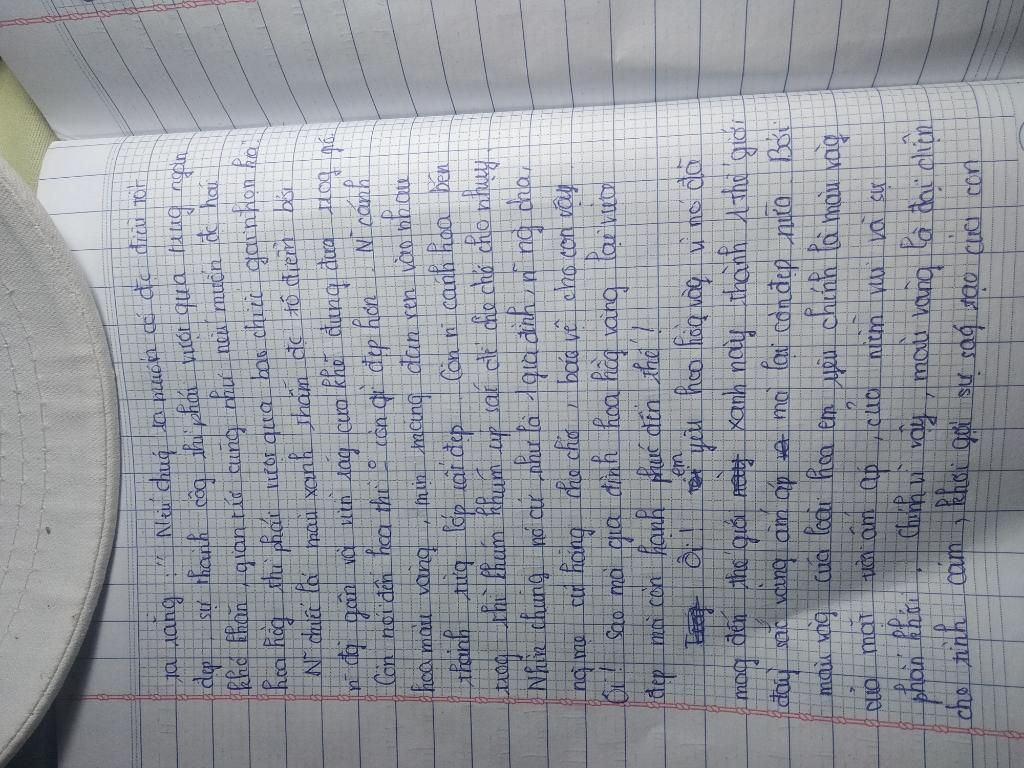 ra rằng: "Nếu chúng ta muốn có đc điều tốt
đẹp sự thành công thì phải vượt qua hưng ngàn
khó khăn, gian khó cũng như nếu muốn đc hái
hoa hồng thì phải vượt qua bao chiếc gai nhọn hoắt
Nh chiếc lá màu xanh thẫm đc tô điểm bởi
n đg gân và viền răng cưa khẽ đung đưa trog gió.
Còn nói đến hoa thì còn gì đẹp hơn. N cánh
hoa màu vàng, mịn màng đan xen vào nhau
thành từng lớp rất đẹp. Còn n cánh hoa bên
trong thì khum khum úp sát để che chở cho nhụy.
Nhìn chúng nó cứ như là 1 gia đình n ng cha,
ng mẹ cứ hằng che chở, bảo vệ cho con vậy.
Ôi! Sao mà gia đình hoa hồng vàng lại vừa
đẹp mà còn hạnh phúc đến thế!
Ôi! em yêu hoa hồng vàng vì nó đã
mang đến thế giới xanh này thành 1 thế giới
đầy sắc vàng ấm áp mà lại còn đẹp nữa. Bởi
màu vàng của loài hoa em yêu chính là màu vàng
của mặt trời ấm áp, của niềm vui và sự
phấn khởi. Chính vì vậy, màu vàng là đại diện
cho tình cảm, khơi gợi sự sáng tạo của con